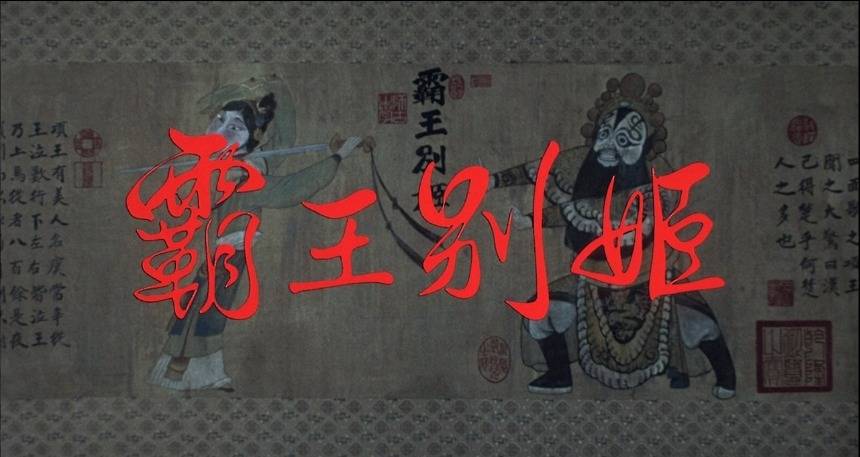 霸王别姬
聞之大驚曰漢
已得楚乎何楚
人之多也
霸王別姬
項王有美人名虞常幸從
王泣數行下左右皆泣王
乃上馬從者八百餘是夜